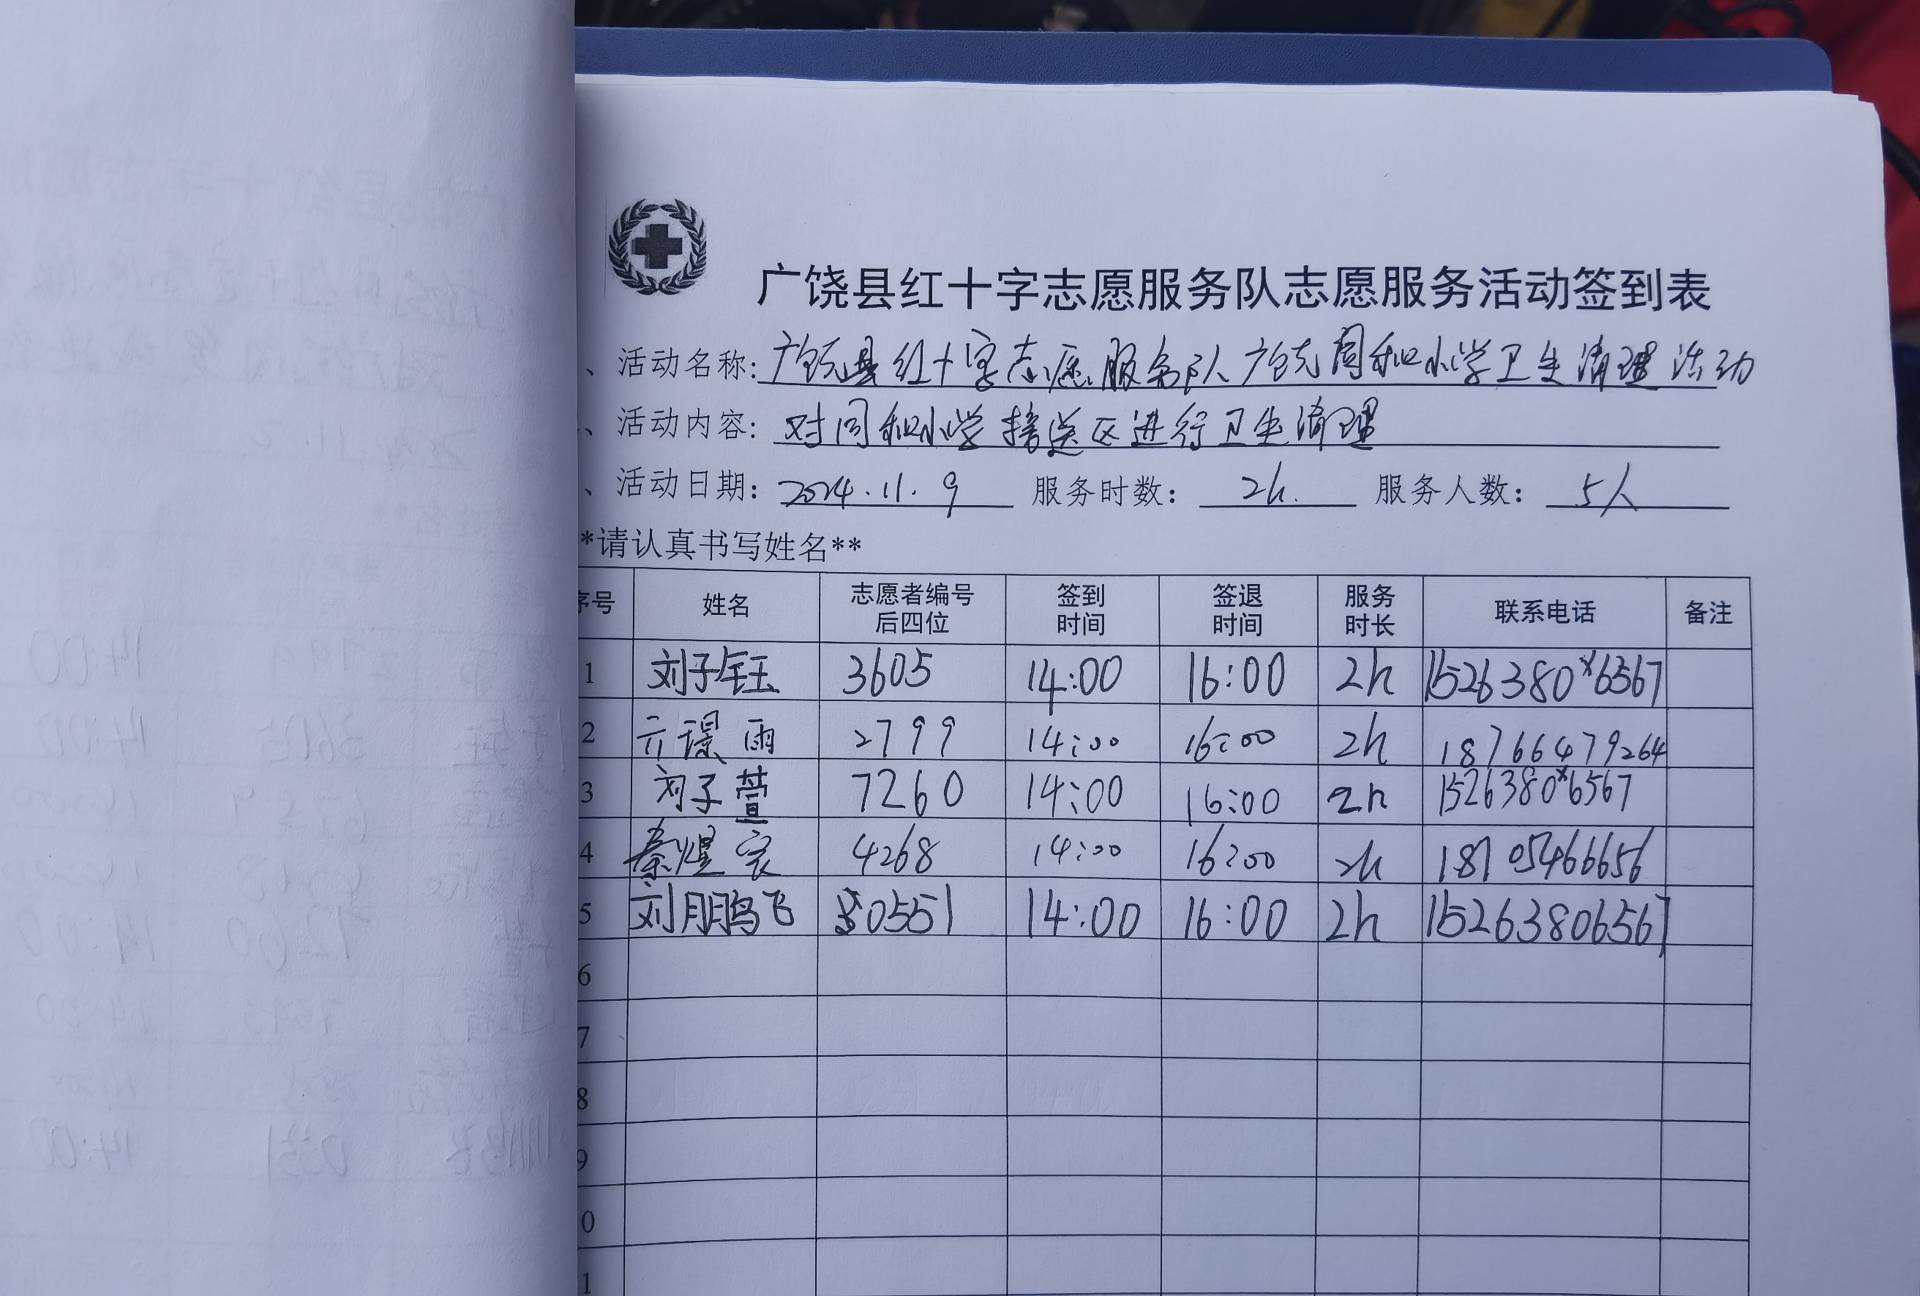 广饶县红十字志愿服务队志愿服务活动签到表
、活动名称:广饶县红十字志愿服务队广饶同和小学卫生清理活动
、活动内容:对同和小学接送区进行卫生清理
、活动日期:2024.11.9 服务时数:2h. 服务人数:5人
*请认真书写姓名**
序号 姓名 志愿者编号后四位 签到时间 签退时间 服务时长 联系电话 备注
1 刘子钰 3605 14:00 16:00 2h 15263806567
2 雨 2799 14:00 16:00 2h 18766479264
3 刘子萱 7260 14:00 16:00 2h 15263806567
4 秦煜宸 4268 14:00 16:00 2h 18705466656
5 刘鹏飞 0551 14:00 16:00 2h 15263806567
6
7
8
9
0
1